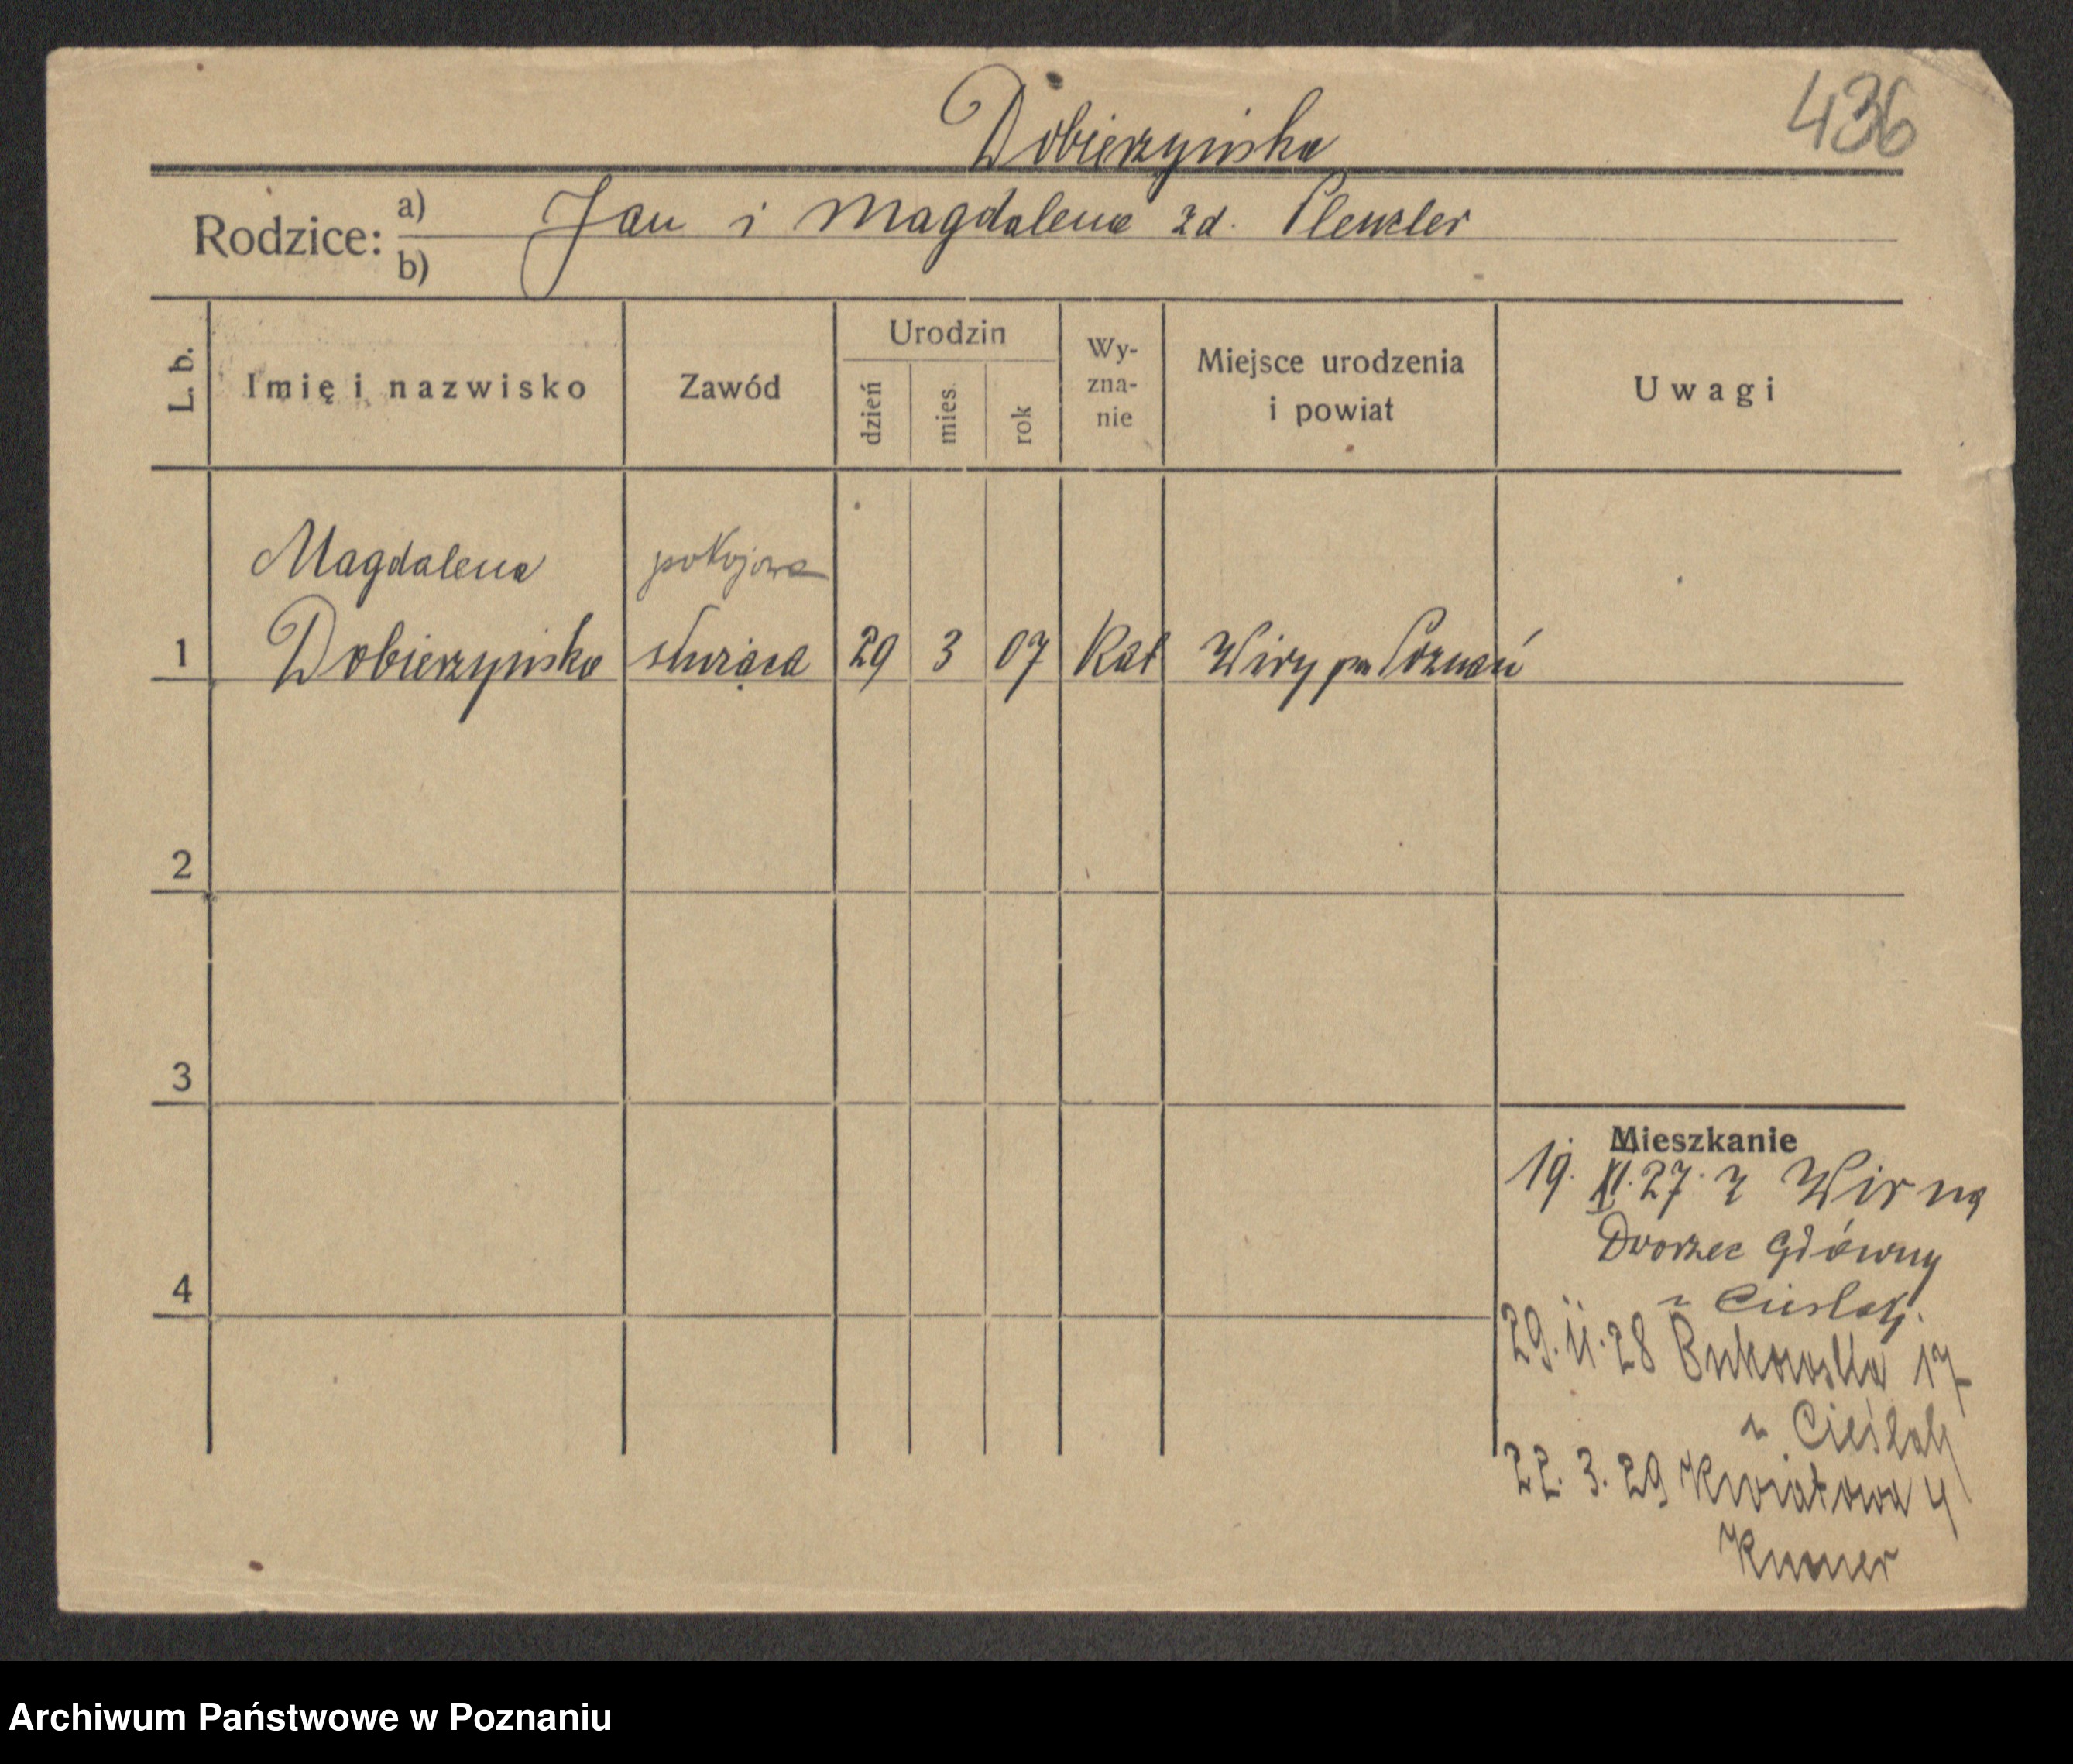 436
Dobierzyńska
Rodzice: a) Jan i Magdalena zd.
b)
L. b.
Imię i nazwisko
Zawód
Urodzin
dzień
mies.
rok
Wy-
zna-
nie
Miejsce urodzenia
i powiat
Uwagi
Magdalena pokojowa
1 Dobierzyńska służąca 29 3 07 Kat Wiry pow Poznań
2
3
4
Mieszkanie
19. XI. 27. z Wir na
Dworzec Główny
u Cieślak.
29. II. 28 Bukowska 17
u Cieślak
22. 3. 29 Kwiatowa 4
Archiwum Państwowe w Poznaniu